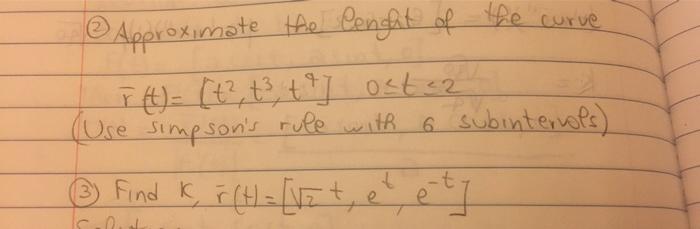 ② Approximate the lenght of the curve
r̄(t) = [t², t³, t⁴] 0≤t≤2
(Use simpson's rule with 6 subintervals)
③ Find K, r̄(t) = [√2 t, e^t, e^-t]